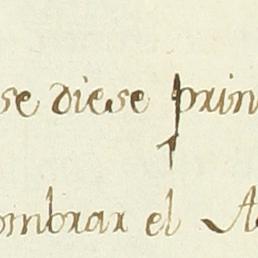 se diese prin
ombrar el A